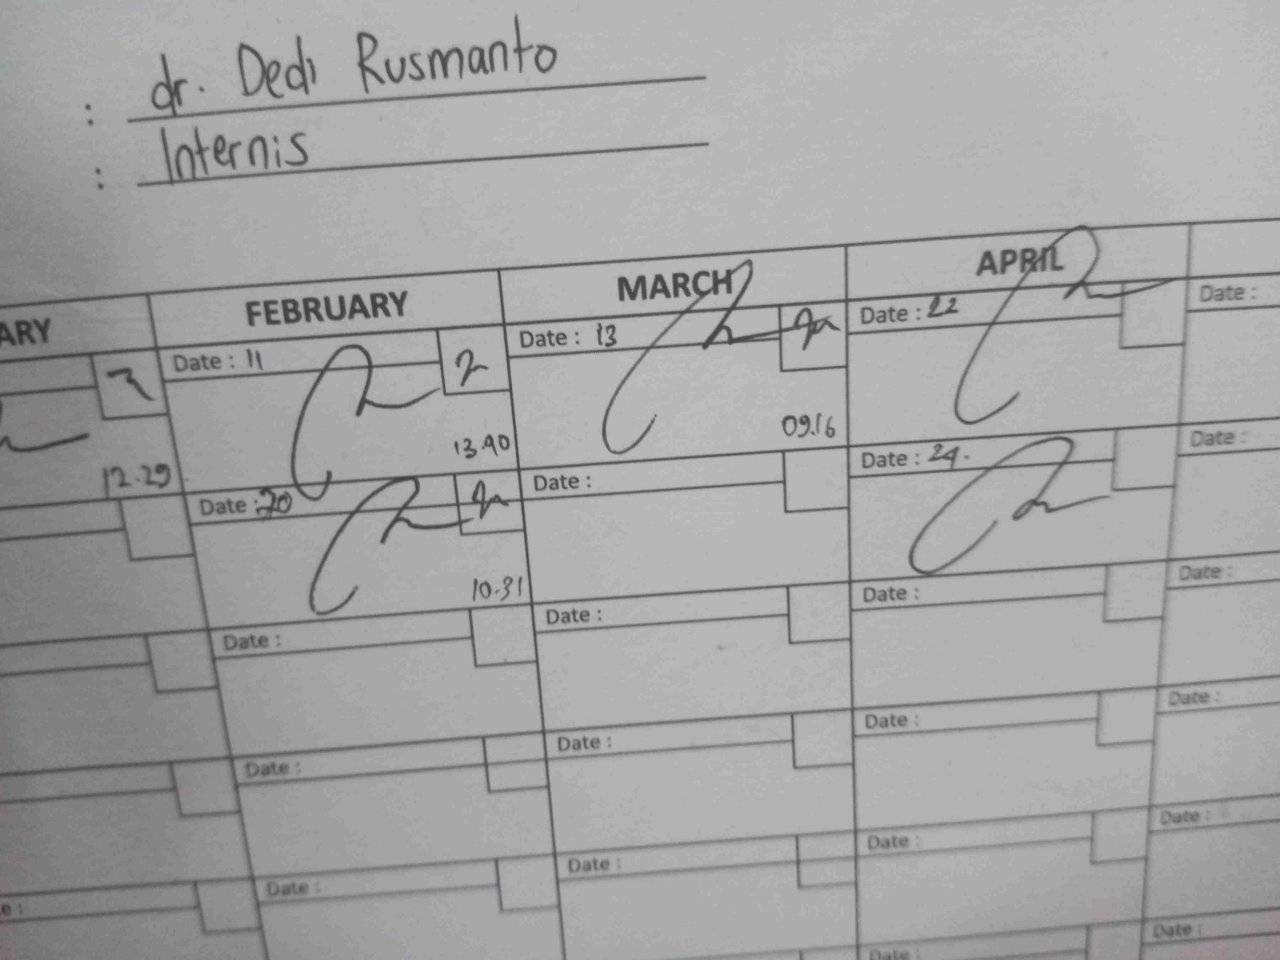 : dr. Dedi Rusmanto
: Internis
ARY FEBRUARY MARCH APRIL
Date : 11 Date : 13 Date : 22 Date :
12.29 13.40 09.16
Date : 20 Date : Date : 24. Date :
10.31
Date : Date : Date : Date :
Date : Date : Date : Date :
e : Date : Date : Date : Date :
Date : Date :